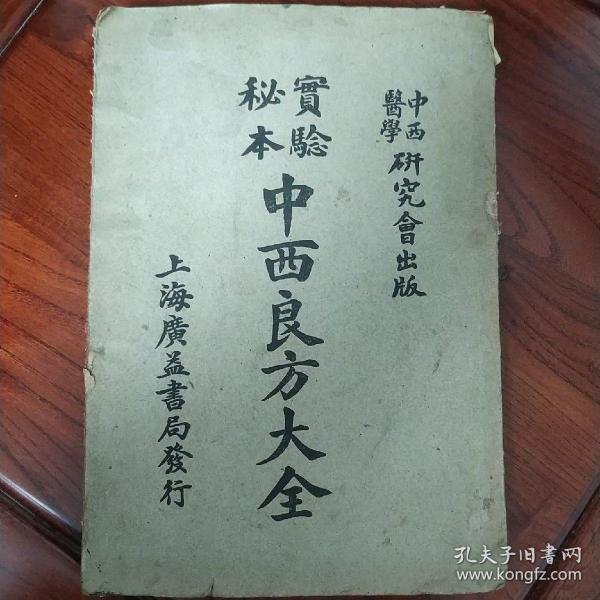 中西醫學研究會出版
實驗秘本中西良方大全
上海廣益書局發行
孔夫子旧书网
www.kongfz.com